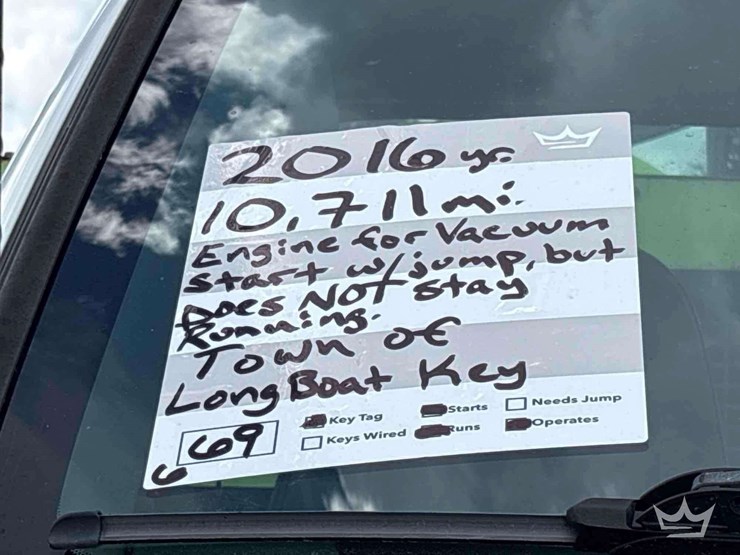 2016 yr.
10,711 mi.
Engine for Vacuum
start w/jump, but
Does NOT stay
Running.
Town of
LongBoat Key
669
Key Tag Starts Needs Jump
Keys Wired Runs Operates